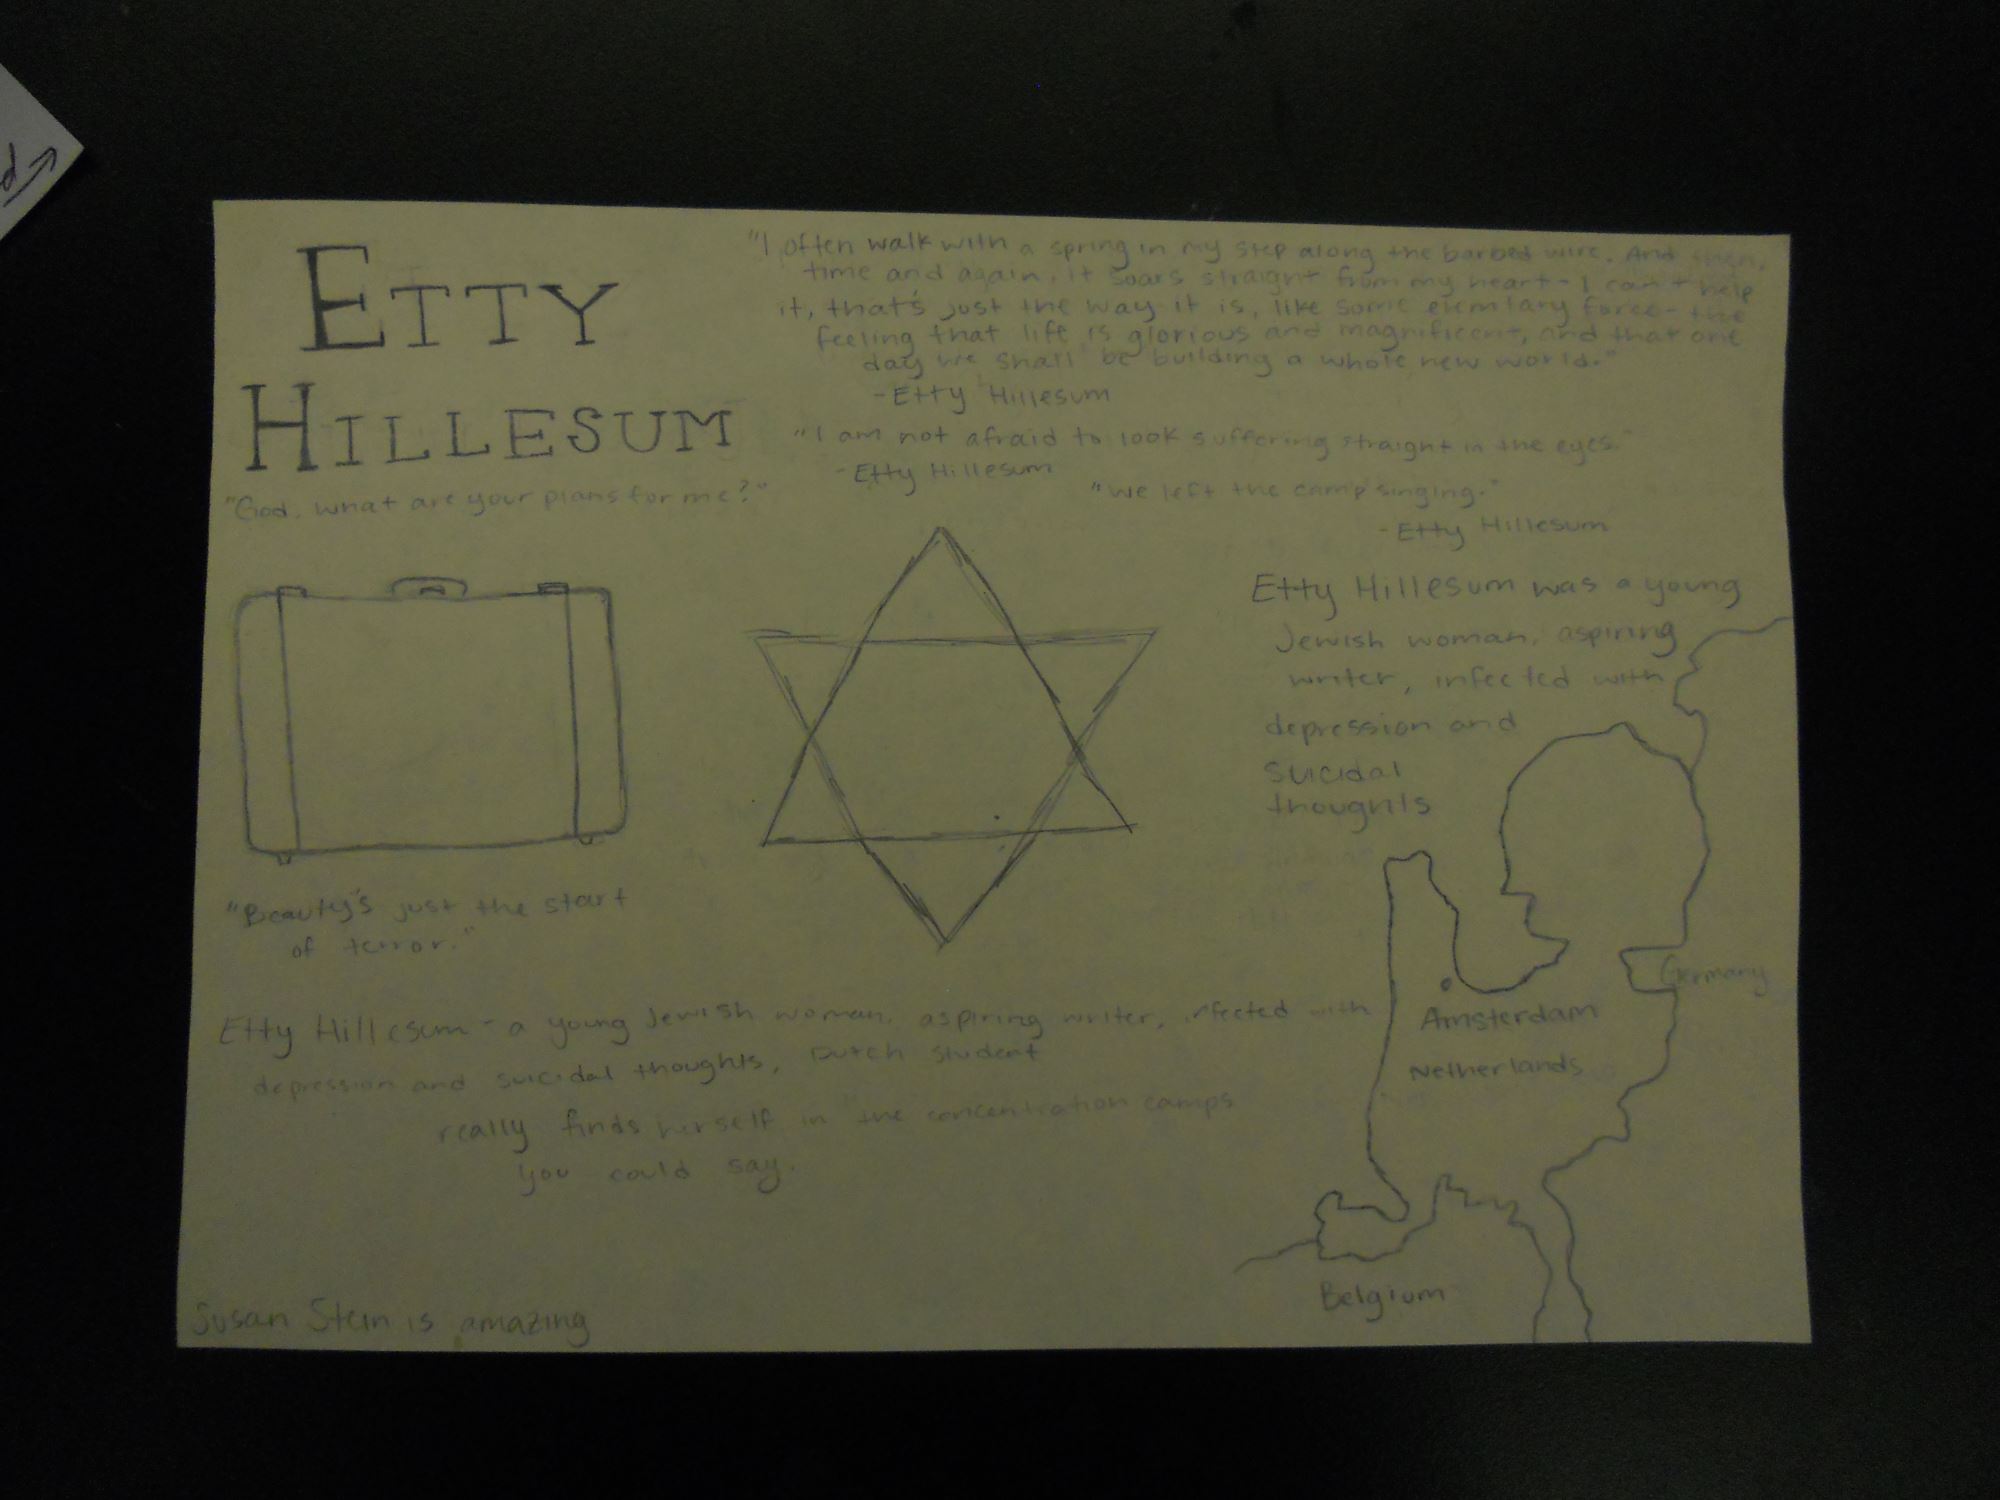 d
ETTY
HILLESUM
"God, what are your plans for me?"
"I often walk with a spring in my step along the barbed wire. And then,
time and again, it soars straight from my heart - I can't help
it, that's just the way it is, like some elemtary force - the
feeling that life is glorious and magnificent, and that one
day we shall be building a whole new world."
- Etty Hillesum
"I am not afraid to look suffering straight in the eyes."
- Etty Hillesum
"We left the camp singing."
- Etty Hillesum
Etty Hillesum was a young
Jewish woman, aspiring
writer, infected with
depression and
suicidal
thoughts
"Beauty's just the start
of terror."
Etty Hillesum - a young Jewish woman, aspiring writer, infected with
depression and suicidal thoughts, Dutch student
really finds herself in the concentration camps
you could say.
Germany
Amsterdam
Netherlands
Belgium
Susan Stein is amazing